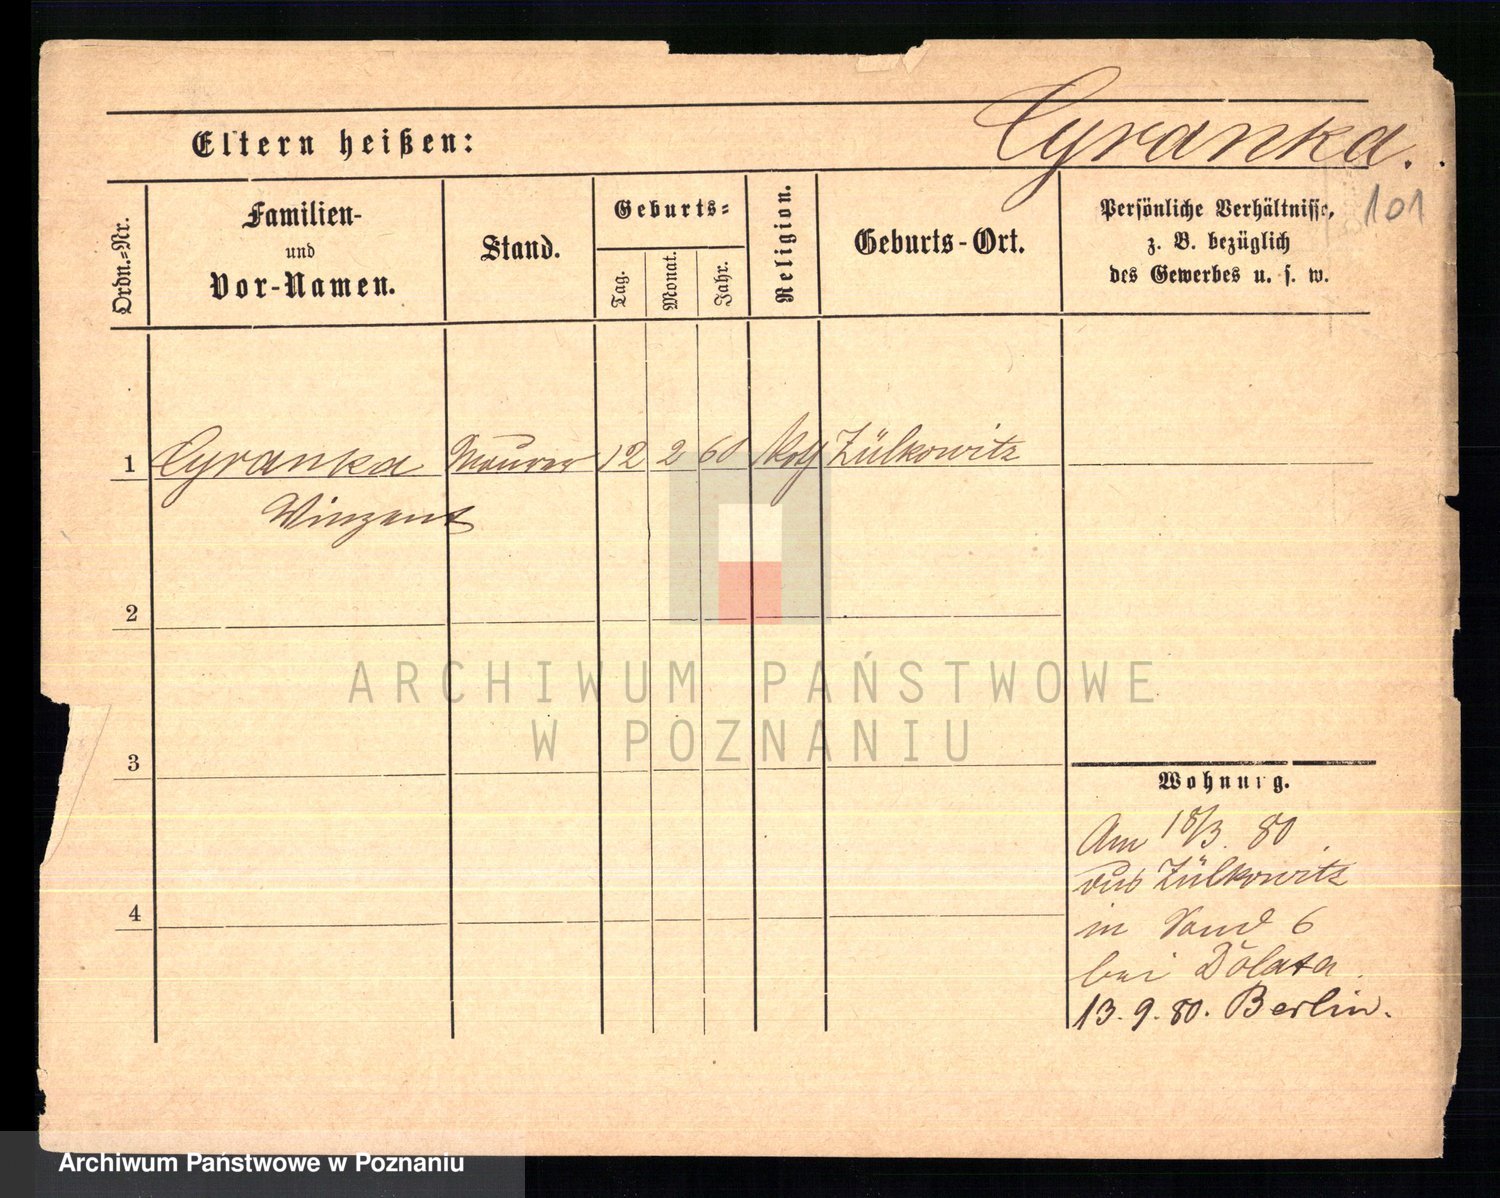 Cyranka.
Eltern heißen:
101
Ordn.-Nr.
Familien-
und
Vor-Namen.
Stand.
Geburts-
Tag.
Monat.
Jahr.
Religion.
Geburts-Ort.
Persönliche Verhältnisse,
z. B. bezüglich
des Gewerbes u. s. w.
1 Cyranka Maurer 12 2 60 Kath Zülkowitz
Winzent
2
3
4
Wohnung.
Am 18/3. 80.
aus Zülkowitz
in Sand 6
bei Dolata.
13. 9. 80. Berlin.
ARCHIWUM PAŃSTWOWE
W POZNANIU
Archiwum Państwowe w Poznaniu